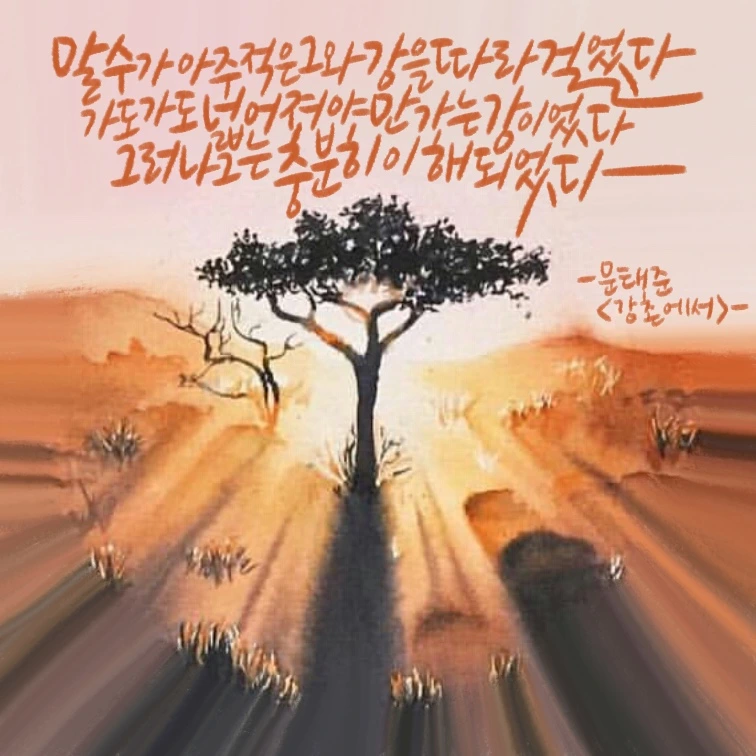 말수가 아주 적은 그와 강을 따라 걸었다
가도 가도 넓어져야만 가는 강이었다
그러나 그는 충분히 이해되었다
-문태준
<강촌에서>-